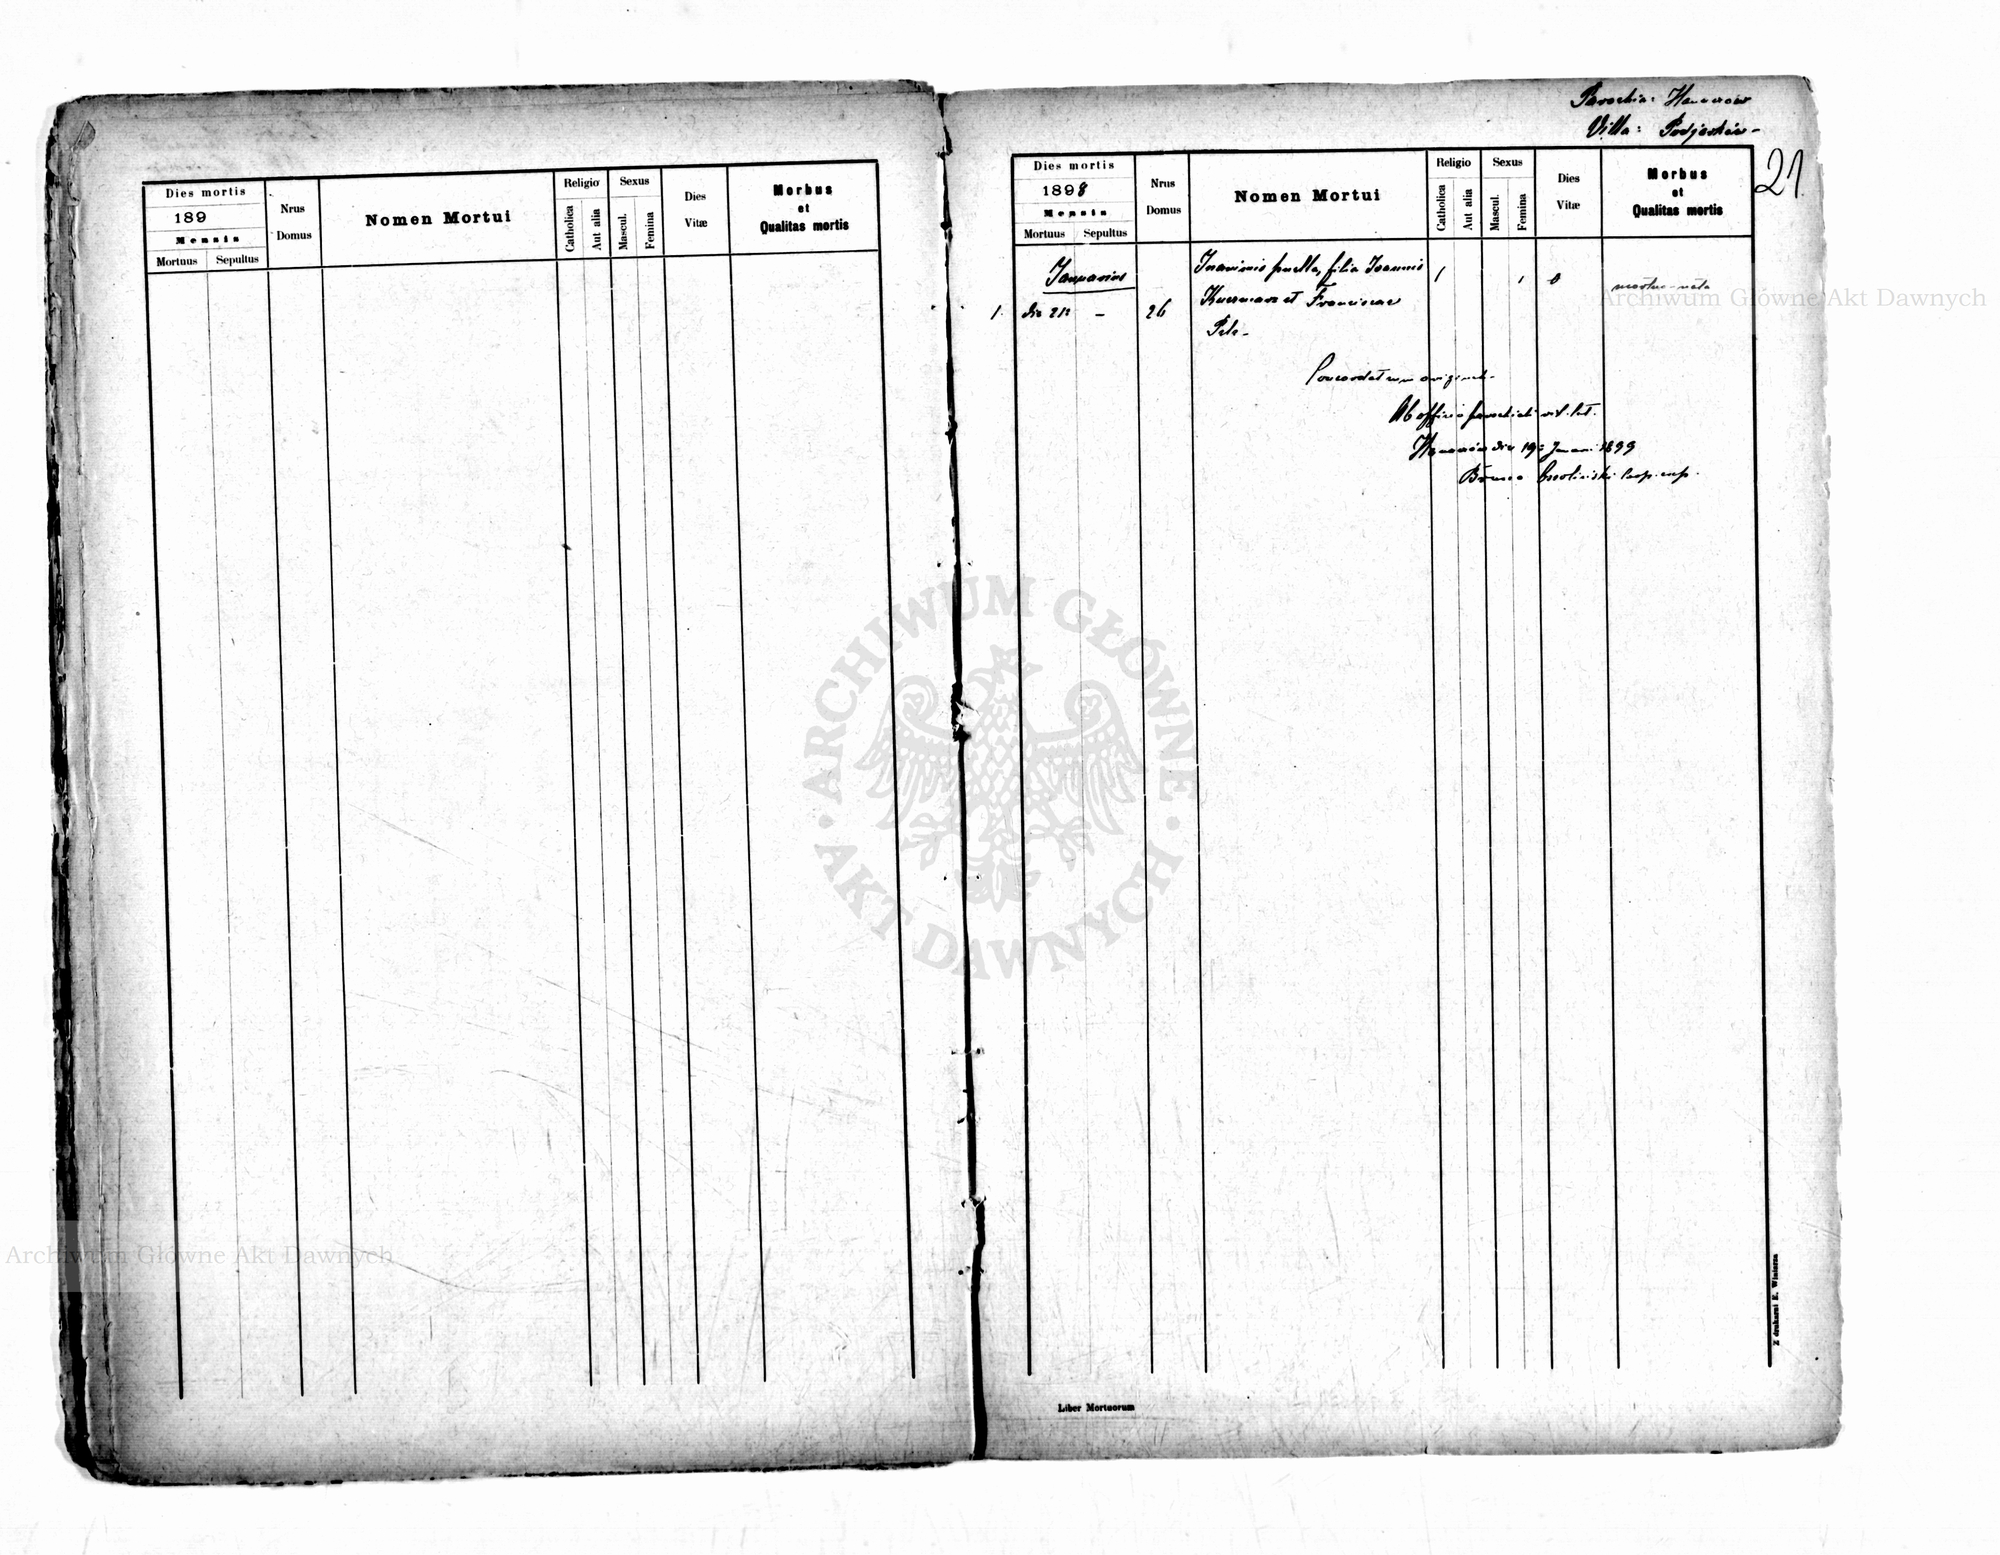 Dies mortis
189
Mensis
Mortuus Sepultus
Nrus
Domus
Nomen Mortui
Religio
Catholica
Aut alia
Sexus
Mascul.
Femina
Dies
Vitæ
Morbus
et
Qualitas mortis
Parochia:
Villa:
21.
Dies mortis
1898
Mensis
Mortuus Sepultus
Nrus
Domus
Nomen Mortui
Religio
Catholica
Aut alia
Sexus
Mascul.
Femina
Dies
Vitæ
Morbus
et
Qualitas mortis
Januarius
puella, filia Joannis
et Franciscae
1. die 21 – 26
1 1 0 mortuo-nata
Concordat cum
Ab officio parochiali rit. lat.
die 19 1899
Liber Mortuorum
Z drukarni E. Winiarza
ARCHIWUM GŁÓWNE
AKT DAWNYCH
Archiwum Główne Akt Dawnych
Archiwum Główne Akt Dawnych